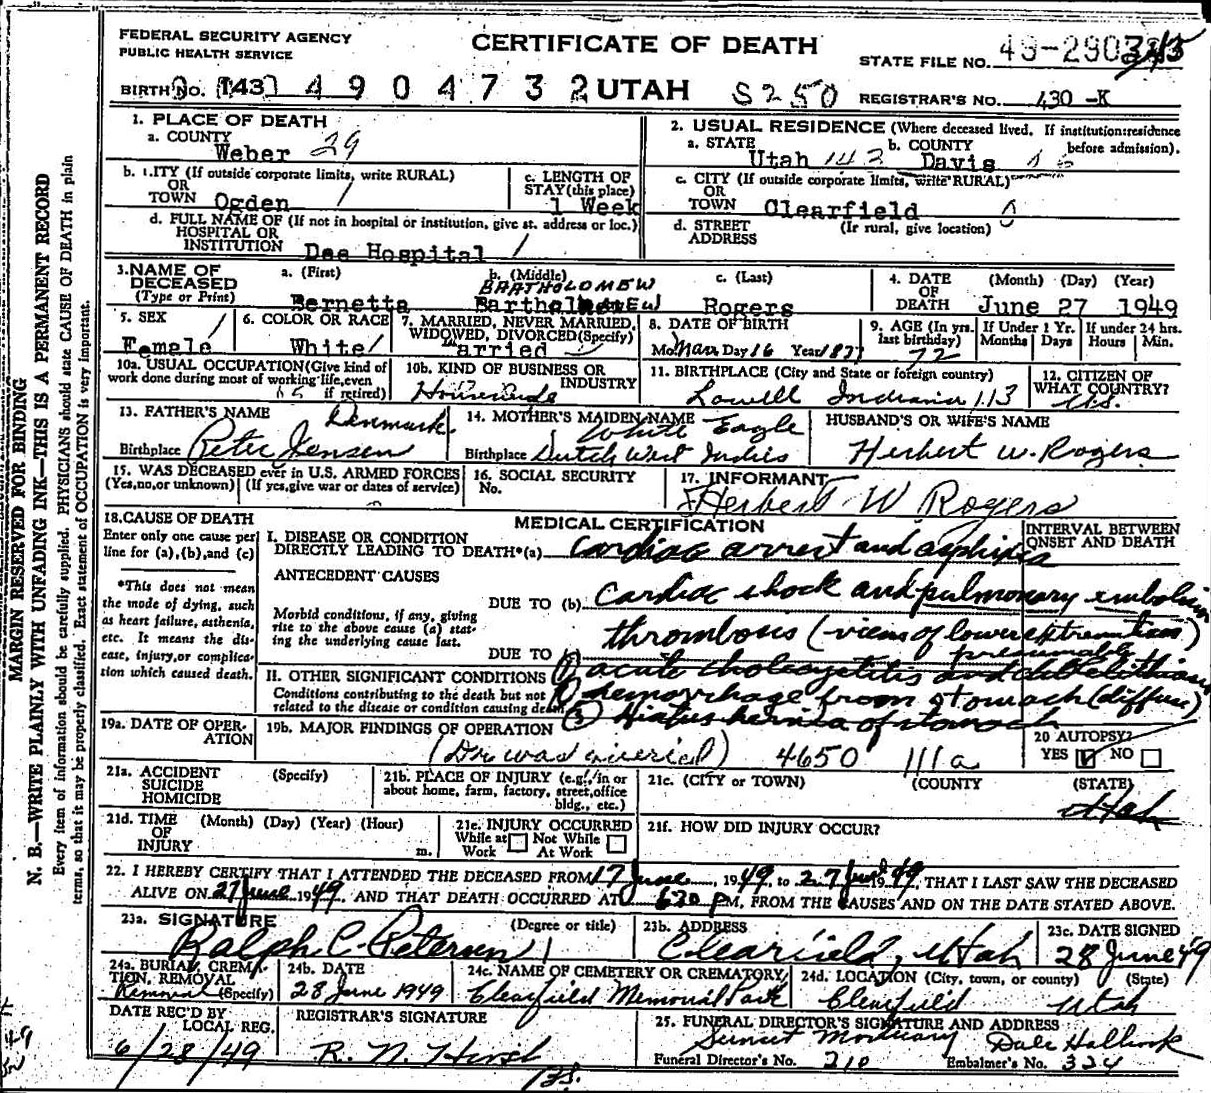 FEDERAL SECURITY AGENCY
PUBLIC HEALTH SERVICE
CERTIFICATE OF DEATH
STATE FILE NO.
BIRTH NO. 143 490473 2 UTAH S250 REGISTRAR'S NO. 430-K
MARGIN RESERVED FOR BINDING
N. B.—WRITE PLAINLY WITH UNFADING INK—THIS IS A PERMANENT RECORD
Every item of information should be carefully supplied. PHYSICIANS should state CAUSE OF DEATH in plain
terms, so that it may be properly classified. Exact statement of OCCUPATION is very important.
1. PLACE OF DEATH
a. COUNTY
Weber 29
b. CITY (If outside corporate limits, write RURAL)
OR
TOWN Ogden 1
c. LENGTH OF
STAY (this place)
1 Week
d. FULL NAME OF (If not in hospital or institution, give st. address or loc.)
HOSPITAL OR
INSTITUTION Dee Hospital 1
2. USUAL RESIDENCE (Where deceased lived. If institution:residence
before admission).
a. STATE Utah 143 b. COUNTY Davis
c. CITY (If outside corporate limits, write RURAL)
OR
TOWN Clearfield 0
d. STREET (If rural, give location)
ADDRESS
3. NAME OF
DECEASED
(Type or Print)
a. (First) b. (Middle) c. (Last)
BARTHOLOMEW
Bernetta Rogers
4. DATE (Month) (Day) (Year)
OF
DEATH June 27 1949
5. SEX
Female 1
6. COLOR OR RACE
White 1
7. MARRIED, NEVER MARRIED,
WIDOWED, DIVORCED(Specify)
arried
8. DATE OF BIRTH
Mo. Mar Day 16 Year 1877
9. AGE (In yrs.
last birthday)
72
If Under 1 Yr.
Months Days
If under 24 hrs.
Hours Min.
10a. USUAL OCCUPATION(Give kind of
work done during most of working life, even
if retired)
10b. KIND OF BUSINESS OR
INDUSTRY
Housewife
11. BIRTHPLACE (City and State or foreign country)
Lowell Indiana 113
12. CITIZEN OF
WHAT COUNTRY?
U.S.
13. FATHER'S NAME Denmark
Birthplace Peter Jensen
14. MOTHER'S MAIDEN NAME
White Eagle
Birthplace Dutch West Indies
HUSBAND'S OR WIFE'S NAME
Herbert W. Rogers
15. WAS DECEASED ever in U.S. ARMED FORCES
(Yes,no,or unknown) (If yes,give war or dates of service)
16. SOCIAL SECURITY
No.
17. INFORMANT
Herbert W Rogers
18. CAUSE OF DEATH
Enter only one cause per
line for (a),(b),and (c)
*This does not mean
the mode of dying, such
as heart failure, asthenia,
etc. It means the dis-
ease, injury,or complica-
tion which caused death.
MEDICAL CERTIFICATION
INTERVAL BETWEEN
ONSET AND DEATH
I. DISEASE OR CONDITION
DIRECTLY LEADING TO DEATH*(a) cardiac arrest and asphixia
ANTECEDENT CAUSES
Morbid conditions, if any, giving
rise to the above cause (a) stat-
ing the underlying cause last.
DUE TO (b) cardiac shock and pulmonary embolism
thrombosis (viens of lower extremities)
presumably
DUE TO
II. OTHER SIGNIFICANT CONDITIONS
Conditions contributing to the death but not
related to the disease or condition causing death.
acute cholecystitis and
hemorrhage from stomach (diffuse)
(3) Hiatus hernia of stomach
19a. DATE OF OPER-
ATION
19b. MAJOR FINDINGS OF OPERATION
(Dr was queried) 4650 111a
20 AUTOPSY?
YES NO
21a. ACCIDENT (Specify)
SUICIDE
HOMICIDE
21b. PLACE OF INJURY (e.g., in or
about home, farm, factory, street,office
bldg., etc.)
21c. (CITY or TOWN) (COUNTY (STATE)
Utah
21d. TIME (Month) (Day) (Year) (Hour)
OF
INJURY m.
21e. INJURY OCCURRED
While at Not While
Work At Work
21f. HOW DID INJURY OCCUR?
22. I HEREBY CERTIFY THAT I ATTENDED THE DECEASED FROM 17 June, 1949 to 27 June 1949, THAT I LAST SAW THE DECEASED
ALIVE ON 27 June 1949, AND THAT DEATH OCCURRED AT 630 PM, FROM THE CAUSES AND ON THE DATE STATED ABOVE.
23a. SIGNATURE (Degree or title)
Ralph C. Petersen
23b. ADDRESS
Clearfield, Utah
23c. DATE SIGNED
28 June 49
24a. BURIAL, CREMA-
TION, REMOVAL
Removal (Specify)
24b. DATE
28 June 1949
24c. NAME OF CEMETERY OR CREMATORY
Clearfield Memorial Park
24d. LOCATION (City, town, or county) (State)
Clearfield Utah
DATE REC'D BY
LOCAL REG.
6/28/49
REGISTRAR'S SIGNATURE
R. N. Hirst
25. FUNERAL DIRECTOR'S SIGNATURE AND ADDRESS
Sunset Mortuary Dale Halbrook
Funeral Director's No. 210 Embalmer's No. 324